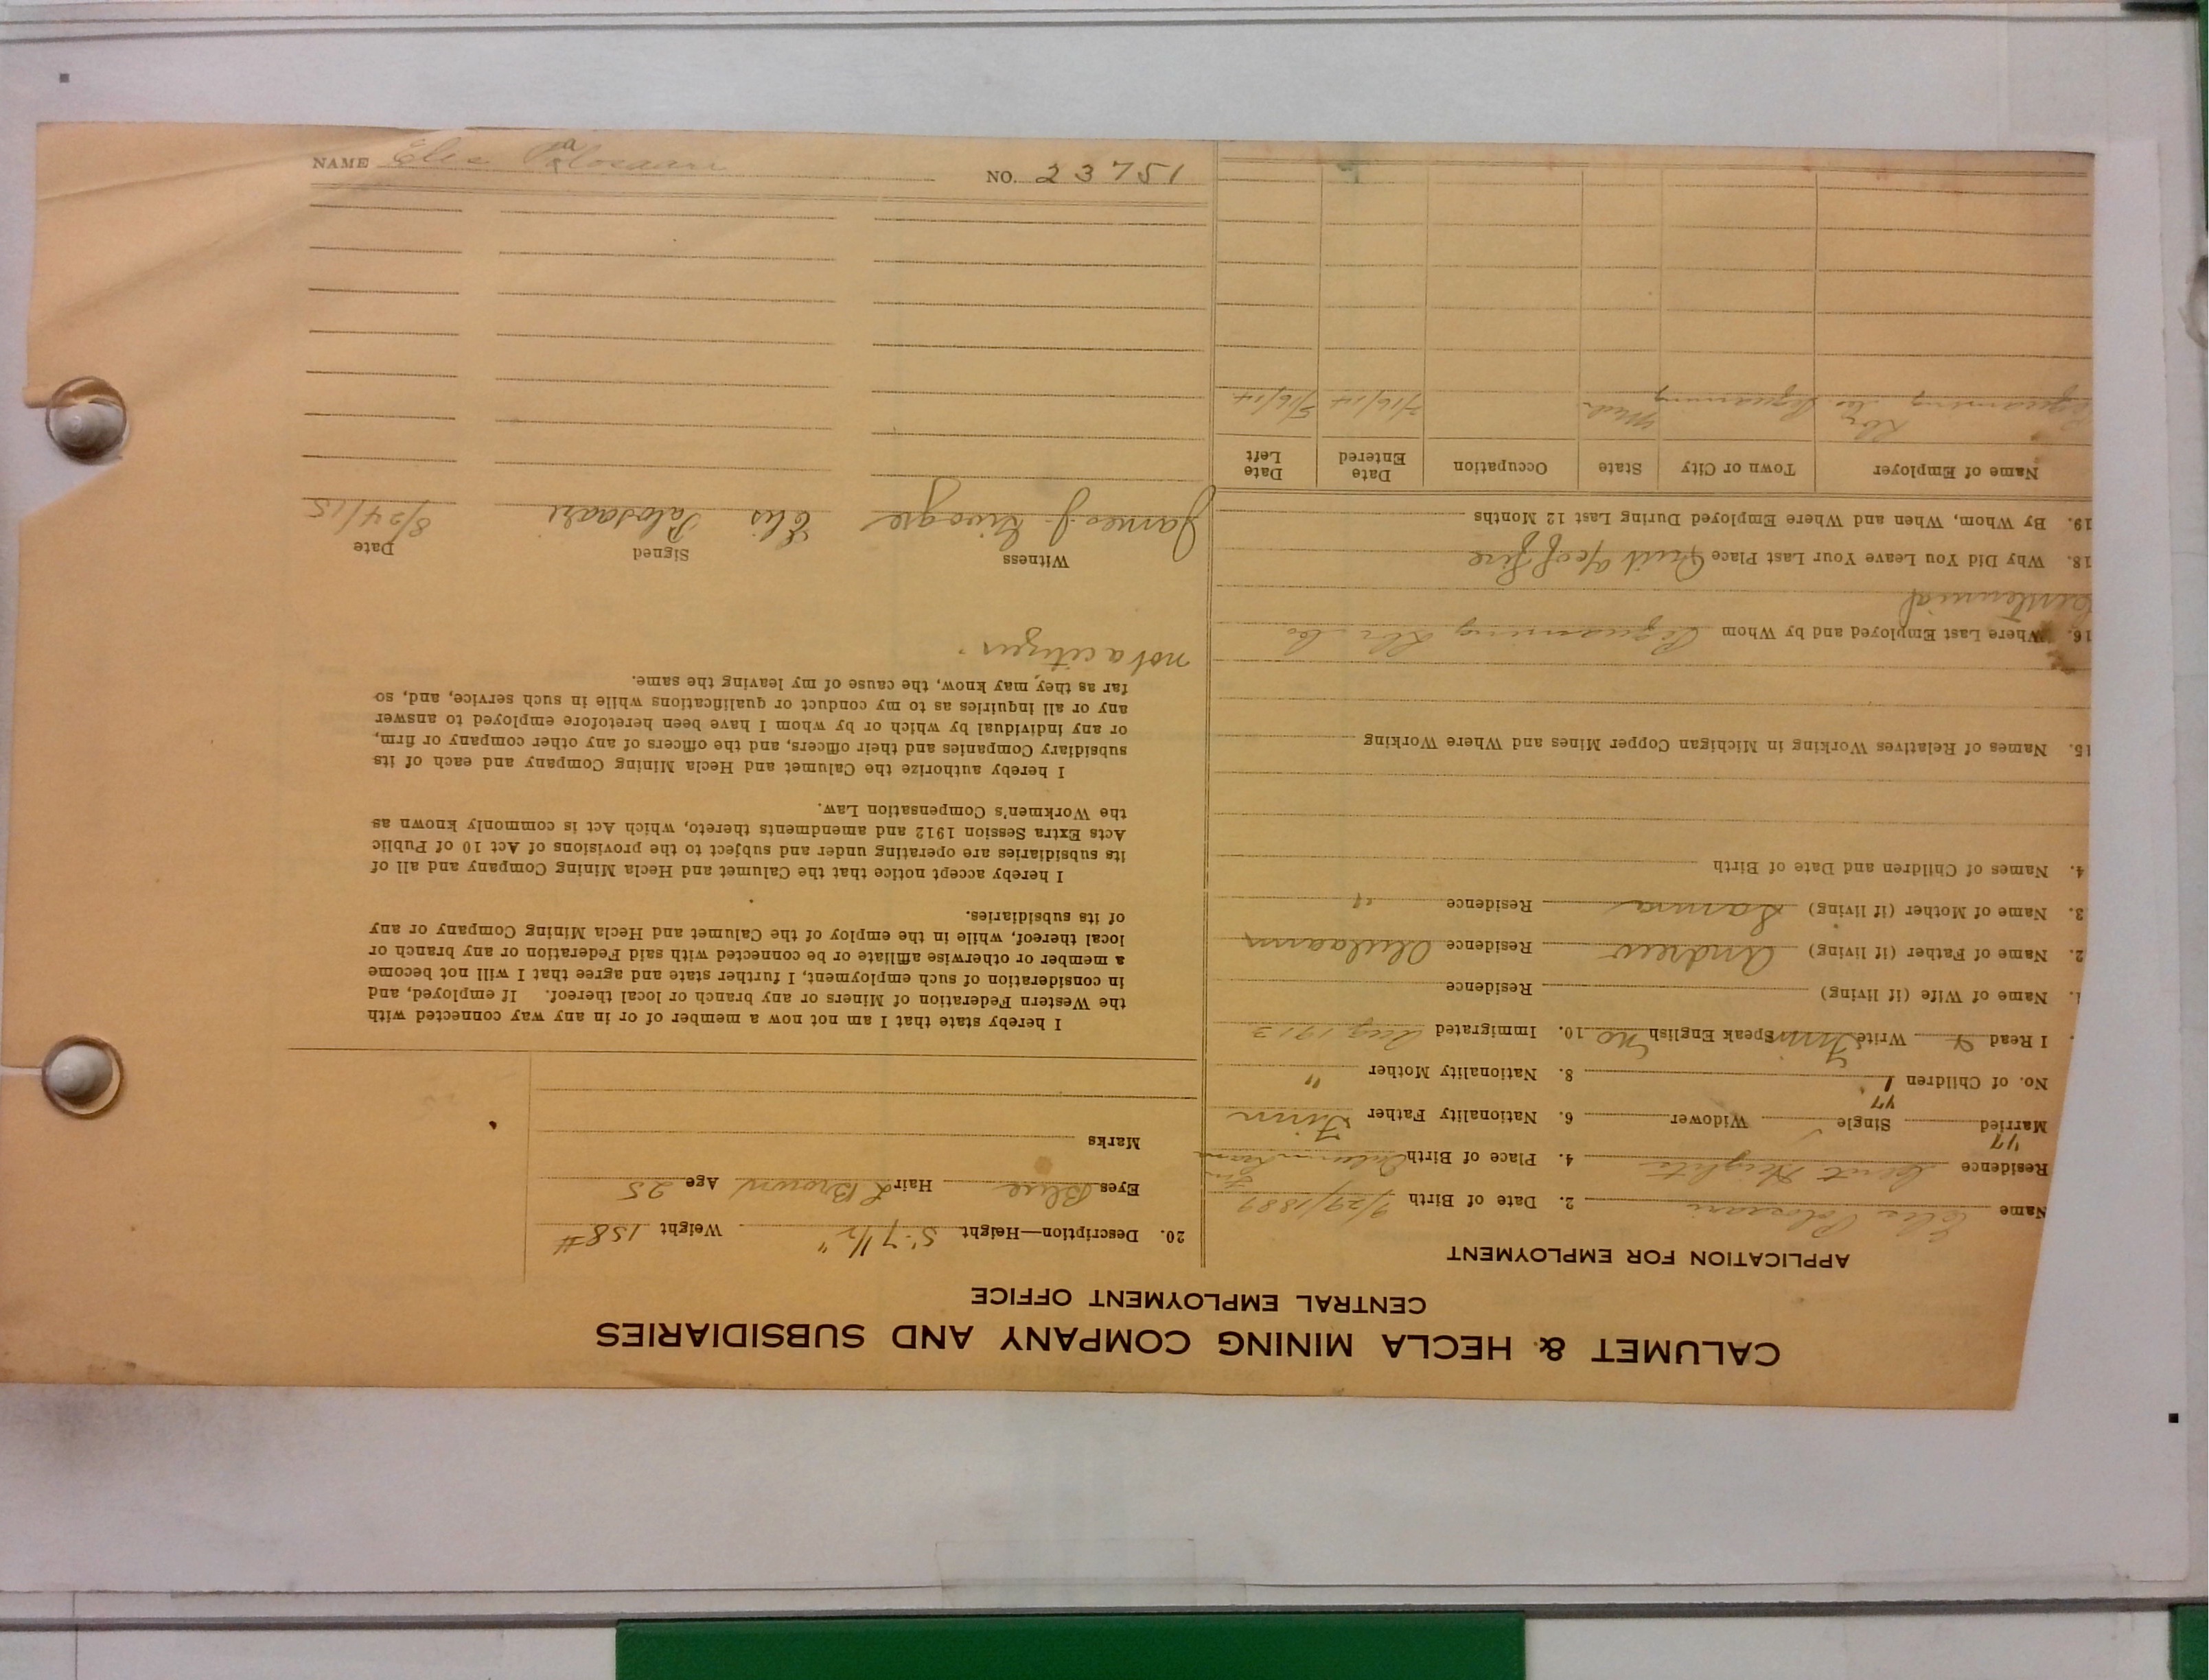 CALUMET & HECLA MINING COMPANY AND SUBSIDIARIES
CENTRAL EMPLOYMENT OFFICE
APPLICATION FOR EMPLOYMENT
Name Elis Palosaari 2. Date of Birth 9/29/1889
Residence Cent Heights 4. Place of Birth
Married Single ✓ Widower 6. Nationality Father Finn
No. of Children 8. Nationality Mother "
I Read Write Finn Speak English No 10. Immigrated Aug 1913
1. Name of Wife (if living) Residence
2. Name of Father (if living) Andrew Residence
3. Name of Mother (if living) Sanna Residence "
4. Names of Children and Date of Birth
15. Names of Relatives Working in Michigan Copper Mines and Where Working
16. Where Last Employed and by Whom Pequaming Lbr Co
Centennial
18. Why Did You Leave Your Last Place Quit
19. By Whom, When and Where Employed During Last 12 Months
Name of Employer Town or City State Occupation Date Entered Date Left
Pequaming Lbr Co Pequaming Mich 7/16/14 5/16/14
20. Description—Height 5'-7 1/2" Weight 158#
Eyes Blue Hair L Brown Age 25
Marks
I hereby state that I am not now a member of or in any way connected with
the Western Federation of Miners or any branch or local thereof. If employed, and
in consideration of such employment, I further state and agree that I will not become
a member or otherwise affiliate or be connected with said Federation or any branch or
local thereof, while in the employ of the Calumet and Hecla Mining Company or any
of its subsidiaries.
I hereby accept notice that the Calumet and Hecla Mining Company and all of
its subsidiaries are operating under and subject to the provisions of Act 10 of Public
Acts Extra Session 1912 and amendments thereto, which Act is commonly known as
the Workmen's Compensation Law.
I hereby authorize the Calumet and Hecla Mining Company and each of its
subsidiary Companies and their officers, and the officers of any other company or firm,
or any individual by which or by whom I have been heretofore employed to answer
any or all inquiries as to my conduct or qualifications while in such service, and, so
far as they may know, the cause of my leaving the same.
not a citizen.
Witness Signed Date
James J. Elis Palosaari 8/24/15
NAME Elis Palosaari NO. 23751